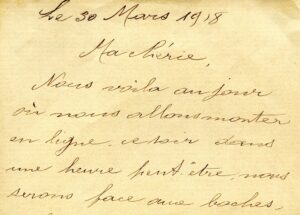 Le 30 Mars 1918
Ma chérie,
Nous voila au jour
où nous allons monter
en ligne. ce soir dans
une heure peut être, nous
serons face aux boches,